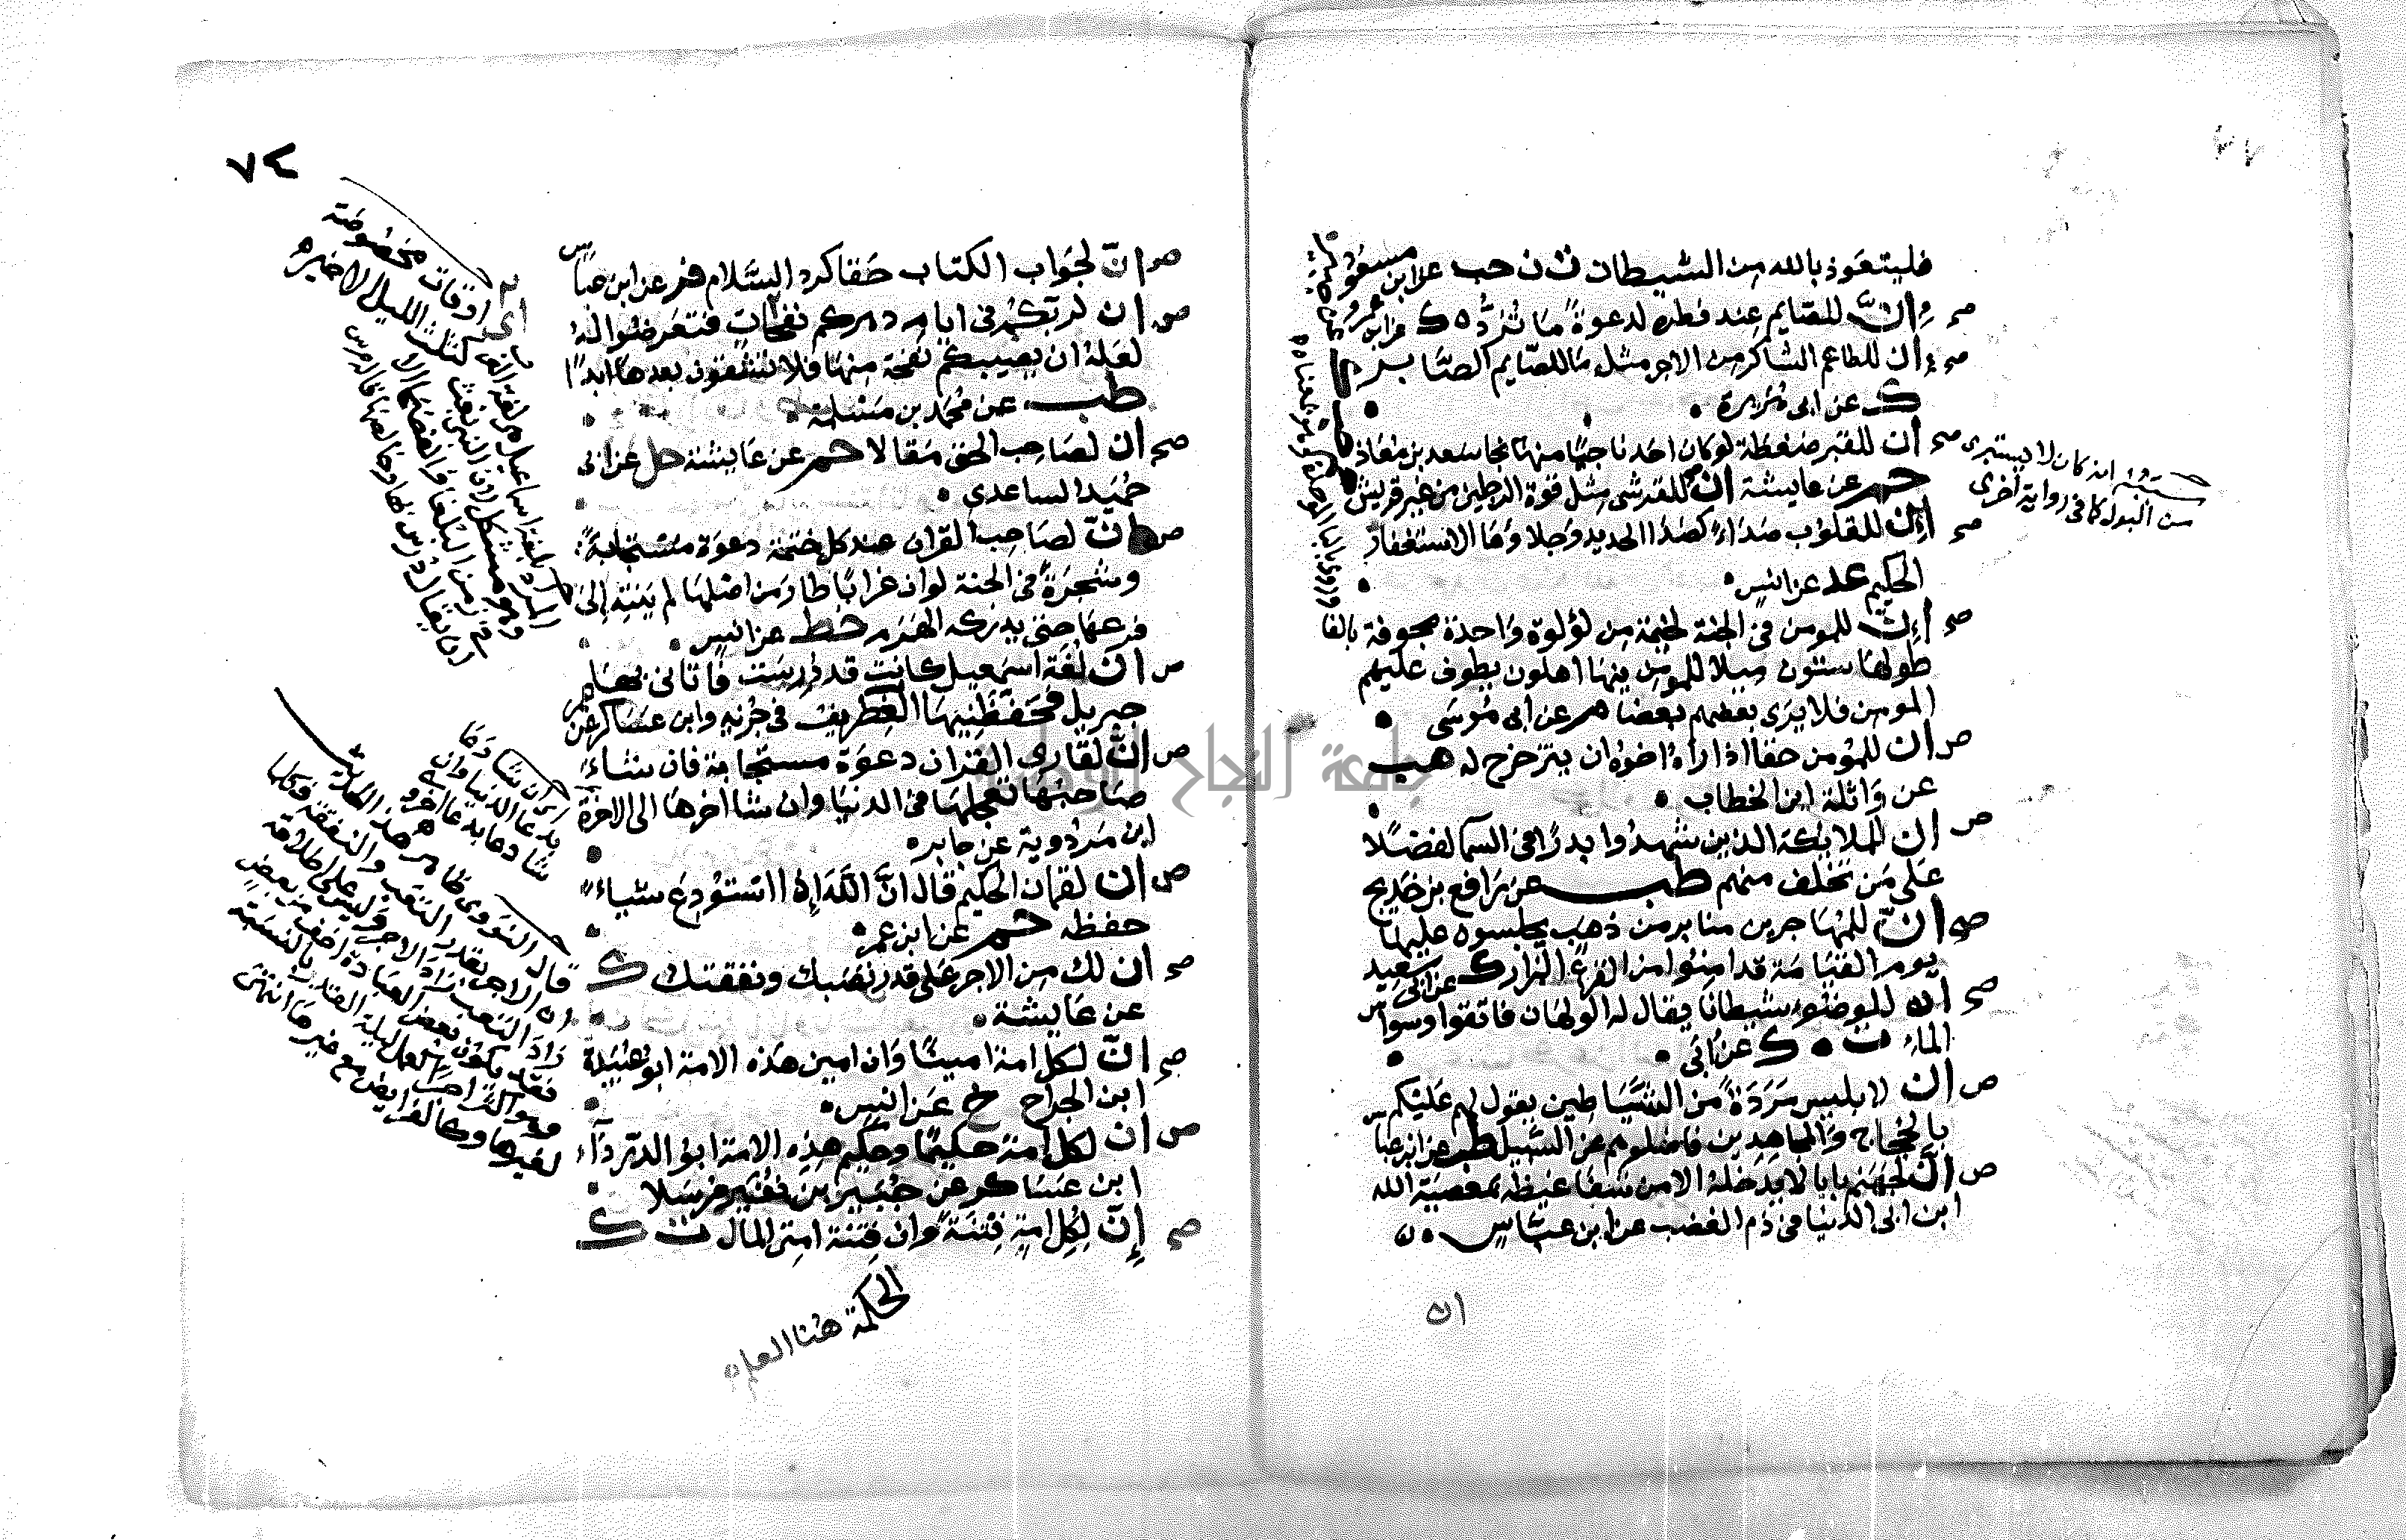 فليتعوذ بالله من الشيطان ت ن حب عن ابن مسعود
صح ان للصايم عند فطره لدعوة ما ترد ه ك عن ابن عمرو
صح ان للطاعم الشاكر من الاجر مثل ما للصايم الصابر
ك عن ابي هريرة
صح ان للقبر ضغطة لو كان احد ناجيا منها نجا سعد بن معاذ
حم عن عايشة ان للقرشي مثل قوة الرجلين من غير قريش
صح ان للقلوب صداء كصدا الحديد وجلاوها الاستغفار
الحكيم عد عن انس
صح ان للمومن في الجنة لخيمة من لؤلوة واحدة مجوفة
طولها ستون ميلا للمومن فيها اهلون يطوف عليهم
المومن فلا يرى بعضهم بعضا م عن ابي موسى
ص ان للمؤمن حقا اذا راه اخوه ان يتزحزح له هب
عن واثلة ابن الخطاب
ص ان للملايكة الذين شهدوا بدرا في السما لفضلا
على من تخلف منهم طب عن رافع بن خديج
صح ان للمهاجرين منابر من ذهب يجلسون عليها
يوم القيامة قد امنوا من الفزع البزار ك عن ابي سعيد
صح ان للوضوء شيطانا يقال له الولهان فاتقوا وسواس
الماء ت ه ك عن ابي
ص ان لابليس مردة من الشياطين يقول لهم عليكم
بالحجاج والمجاهدين فاضلوهم عن السبيل طب عن ابن عباس
ص ان لجهنم بابا لا يدخله الا من شفا غيظه بمعصية الله
ابن ابي الدنيا في ذم الغضب عن ابن عباس
ان
انه كان لا يستبرى
من البول كما في رواية اخرى
٧٤
ص ان لجواب الكتاب حقا كرد السلام فر عن ابن عباس
ص ان لربكم في ايام دهركم نفحات فتعرضوا له
لعله ان يصيبكم نفحة منها فلا تشقون بعدها ابدا
طب عن محمد بن مسلمة
صح ان لصاحب الحق مقالا حم عن عايشة حل عن ابي
حميد الساعدي
ص ان لصاحب القران عند كل ختمة دعوة مستجابة
وشجرة في الجنة لو ان غرابا طار من اصلها لم ينته الى
فرعها حتى يدركه الهرم خط عن انس
ص ان لغة اسمعيل كانت قد درست فاتاني بها
جبريل فحفظنيها الغطريف في جزئه وابن عساكر عن عمر
ص ان لقارى القران دعوة مستجابة فان شاء
صاحبها تعجلها في الدنيا وان شا اخرها الى الاخرة
ابن مردوية عن جابر
ص ان لقمان الحكيم قال ان الله اذا استودع شياء
حفظه حم عن ابن عمر
صح ان لك من الاجر على قدر نصبك ونفقتك ك
عن عايشة
صح ان لكل امة امينا وان امين هذه الامة ابو عبيدة
ابن الجراح خ عن انس
ص ان لكل امة حكيما وحكيم هذه الامة ابو الدرداء
ابن عساكر عن جبير بن نفير مرسلا
صح ان لكل امة فتنة وان فتنة امتي المال ت ك
اي اوقات مخصوصة
كثلث الليل الاخير
اي ان شا دعا
يدعا الدنيا وان
شا دعا بدعا اخروي
قال النووي ظاهر هذا الحديث
ان الاجر بقدر التعب والنفقة وكلما
زاد التعب زاد الاجر وليس على اطلاقه
فقد يكون بعض العبادة اخف من بعض
وهو الثر اجرا كالعمل ليلة القدر بالنسبة
لغيرها وكالفرايض مع غيرها انتهى
الحكمة هنا العلم
جامعة النجاح الوطنية